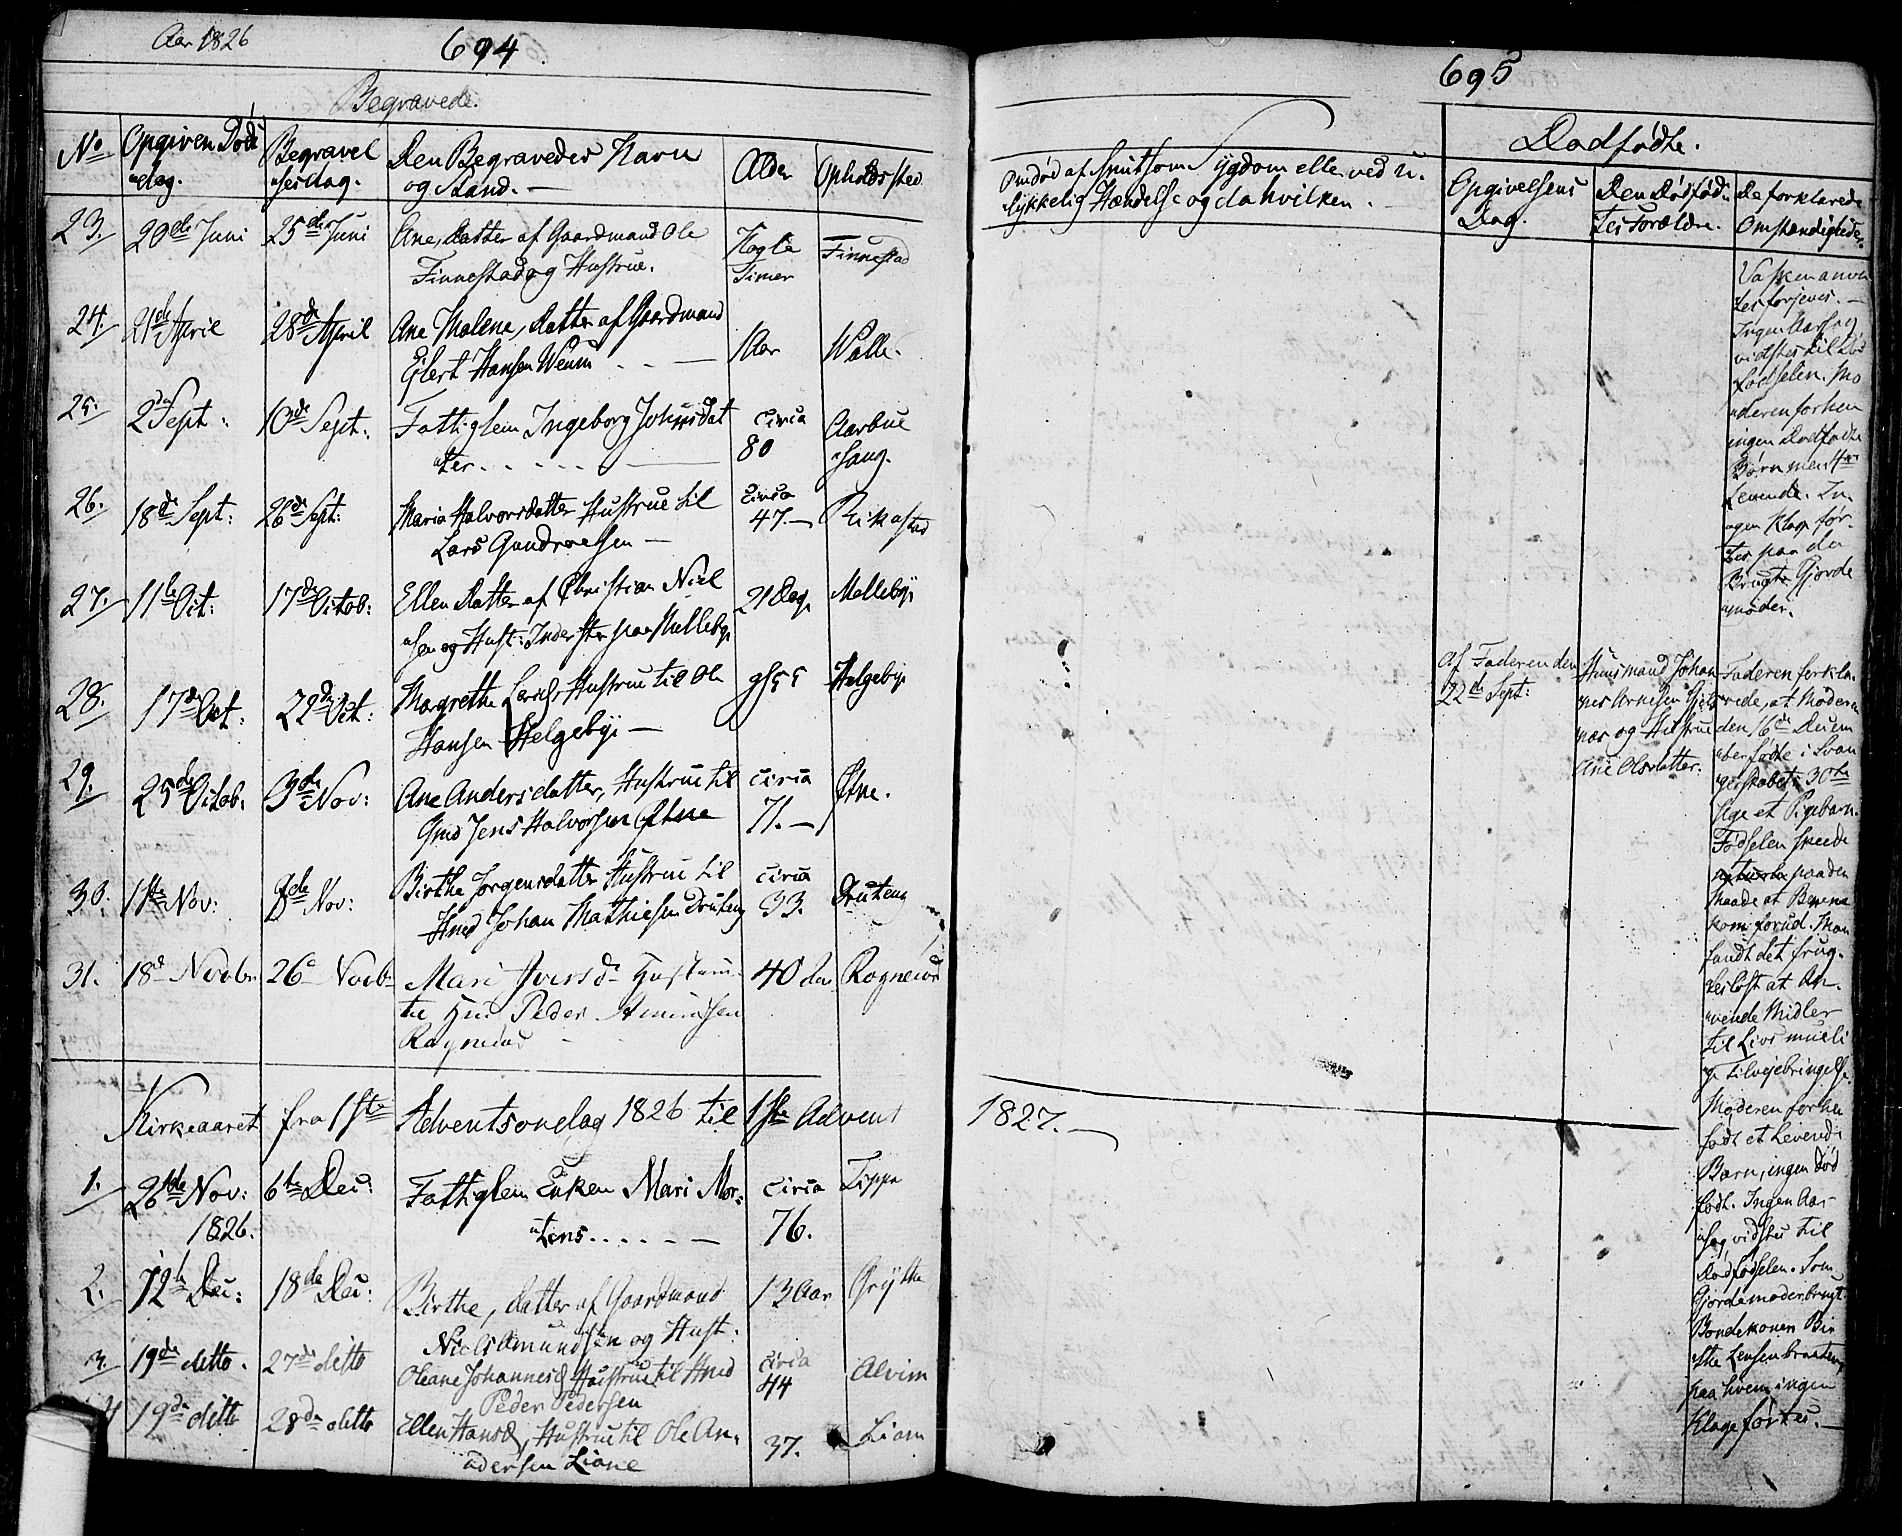 Aar 1826
694
Begravede.
No
Opgiven Døds
"dag.
Begravel
"sesdag.
Den Begravedes Navn
og Stand. —
Alder
Opholdssted
23.
20de Juni
25de Juni
Ane, Datter af Gaardmand Ole
Finnestad og Hustrue.
Nogle
Timer
Finnestad
24.
21de April
28de April
Ane Malene, Datter af Gaardmand
Eilert Hansen
1 Aar
25.
2d Sept:
10de Sept:
Fattiglem Ingeborg Johnsdat
"ter. . . . . . —
circa
80
26.
18de Sept:
26de Sept:
Maria Halvorsdatter Hustrue til
Lars Gundersen —
circa
47. —
Rikastad
27.
11te Oct:
17de Octob:
Ellen Datter af Christian Niel
"sen og Hust: Inderster paa Mellebye
21 Dag.
Mellebye
28.
17de Oct:
22de Oct:
Margrethe Larsd. Hustrue til Ole
Hansen Helgebye —
55
Helgebye
29.
25de Octob:
3de Nov:
Ane Andersdatter, Hustrue til
Gmd Jens Halvorsen Østne
circa
71. —
Østne.
30.
1ste Nov:
8de Nov:
Birthe Jørgensdatter Hustrue til
Hmd Johan Mathiesen
circa
33.
31.
18d Novbr
26d Novbr
Mari Iversd. Hustrue
til Hmd Peder Amundsen
40 Aar
Kirkeaaret fra 1ste Adventsøndag 1826 til 1ste Advent
1.
26de Nov:
1826.
6te Dec:
Fattiglem Enken Mari Mor:
"tens. . . . . . —
circa
76.
2.
12te Dec:
18de Dec:
Birthe, Datter af Gaardmand
Niels Amundsen og Hust:
13 Aar
3.
19de ditto.
27de ditto
Oleane Johannesd. Hustrue til Hmd
Peder Pedersen
circa
44
Alvim
4
19de ditto
28de ditto
Ellen Hansd., Hustrue til Ole An:
"dersen Liane
37.
695
Om død af smitsom Sygdom eller ved u:
lykkelig Hændelse og da hvilken. —
Dødfødte.
Opgivelsens
Dag.
Den Dødfød:
tes Forældre.
De forklarede
Omstændigheder.
forgjeves. —
Ingen Aarsag
vidstes til Død
fødselen. Mo
"deren forhen
ingen Dødfødte
Børn men 4re
Levende. In
"gen Klage før
tes paa den
Brugte Gjorde
"moder.
Af Faderen den
22de Sept:
Huusmand Johan
og Hustrue
Ane Olsdatter.
Faderen forkla:
"rede, at Moderen
den 16de
"ber fødte i Svan
gerskabets 30te
Uge et Pigebarn.
Fødselen skeede
paa den
Maade at Benene
kom forud. Man
fandt det frug:
tesløst at An:
"vende Midler
til Livs mueli
ge Tilvejebringelse.
Moderen forhen
født et Levende
Barn, ingen Død
født. Ingen Aar
"sag vidstes til
Dødfødselen. Som
Gjordemoder brugt
Bondekonen Bir
"the
paa hvem ingen
Klage førtes. —
1827. —